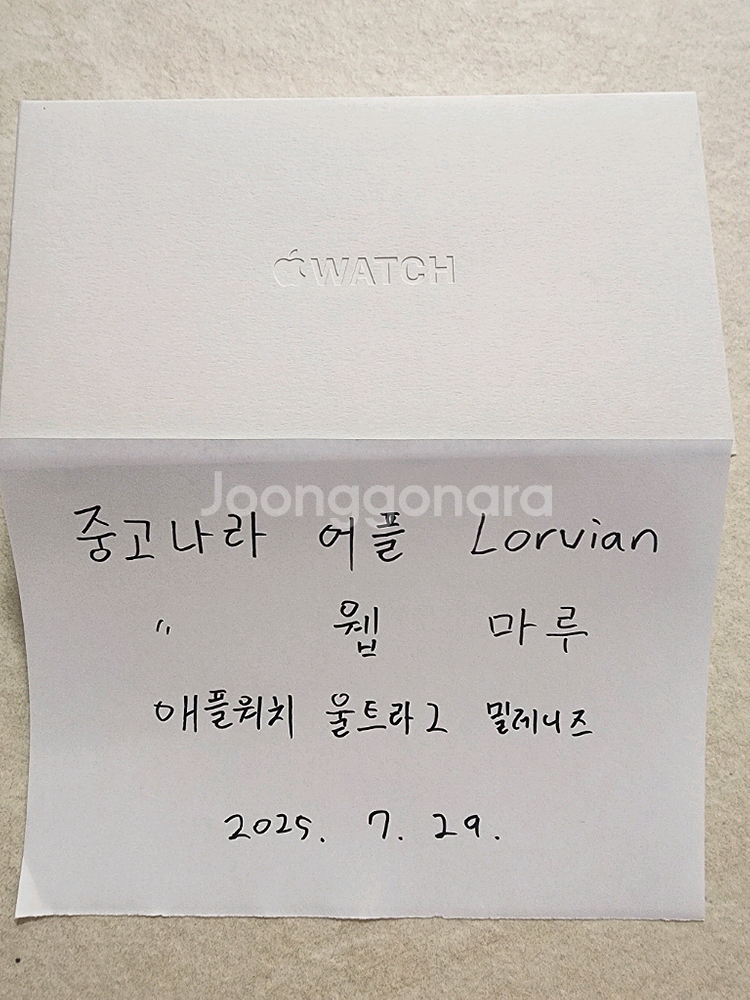 WATCH
Joonggonara
중고나라 어플 Lorvian
〃 웹 마루
애플워치 울트라2 밀레니즈
2025. 7. 29.